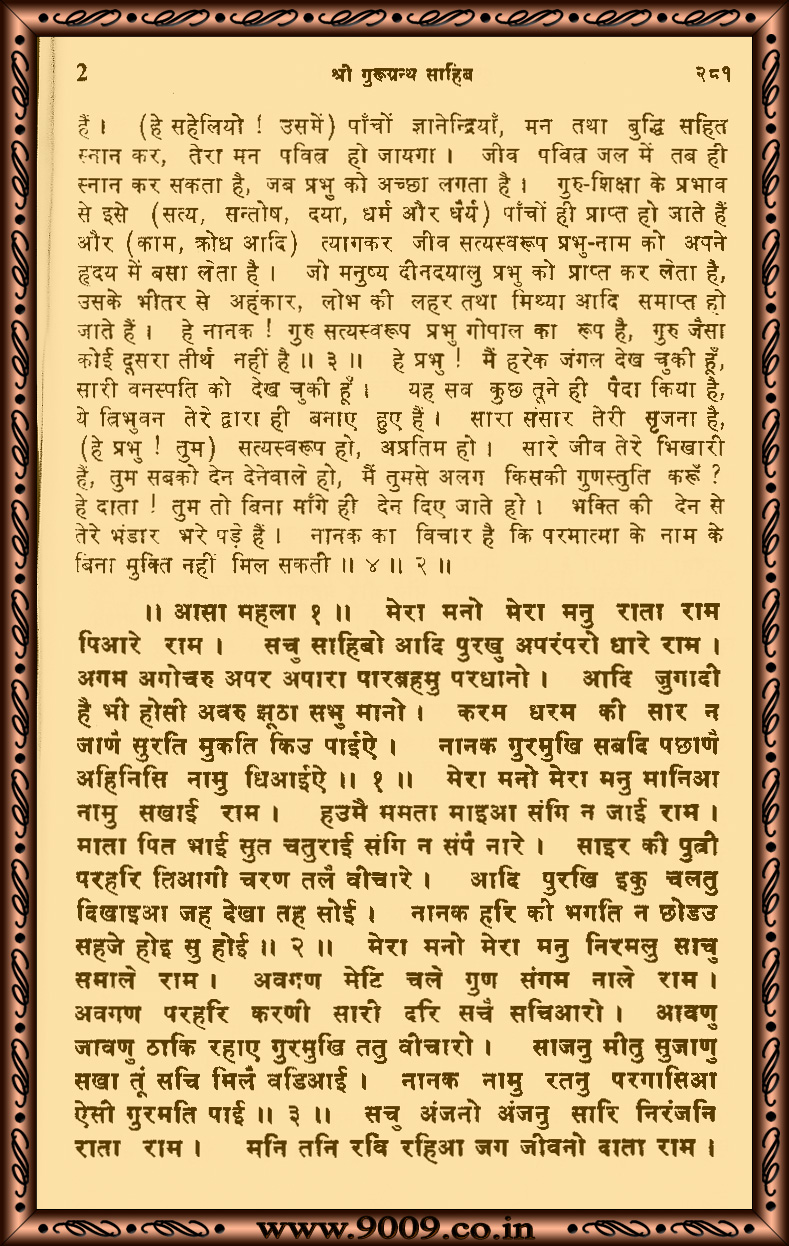 2 श्री गुरूग्रन्थ साहिब २८१
हैं । (हे सहेलियो ! उसमें) पाँचों ज्ञानेन्द्रियाँ, मन तथा बुद्धि सहित
स्नान कर, तेरा मन पवित्र हो जायगा । जीव पवित्र जल में तब ही
स्नान कर सकता है, जब प्रभु को अच्छा लगता है । गुरु-शिक्षा के प्रभाव
से इसे (सत्य, सन्तोष, दया, धर्म और धैर्य) पाँचों ही प्राप्त हो जाते हैं
और (काम, क्रोध आदि) त्यागकर जीव सत्यस्वरूप प्रभु-नाम को अपने
हृदय में बसा लेता है । जो मनुष्य दीनदयालु प्रभु को प्राप्त कर लेता है,
उसके भीतर से अहंकार, लोभ की लहर तथा मिथ्या आदि समाप्त हो
जाते हैं । हे नानक ! गुरु सत्यस्वरूप प्रभु गोपाल का रूप है, गुरु जैसा
कोई दूसरा तीर्थ नहीं है ॥ ३ ॥ हे प्रभु ! मैं हरेक जंगल देख चुकी हूँ,
सारी वनस्पति को देख चुकी हूँ । यह सब कुछ तूने ही पैदा किया है,
ये त्रिभुवन तेरे द्वारा ही बनाए हुए हैं । सारा संसार तेरी सृजना है,
(हे प्रभु ! तुम) सत्यस्वरूप हो, अप्रतिम हो । सारे जीव तेरे भिखारी
हैं, तुम सबको देन देनेवाले हो, मैं तुमसे अलग किसकी गुणस्तुति करूँ ?
हे दाता ! तुम तो बिना माँगे ही देन दिए जाते हो । भक्ति की देन से
तेरे भंडार भरे पड़े हैं । नानक का विचार है कि परमात्मा के नाम के
बिना मुक्ति नहीं मिल सकती ॥ ४ ॥ २ ॥
॥ आसा महला १ ॥ मेरा मनो मेरा मनु राता राम
पिआरे राम । सचु साहिबो आदि पुरखु अपरंपरो धारे राम ।
अगम अगोचरु अपर अपारा पारब्रहमु परधानो । आदि जुगादी
है भी होसी अवरु झूठा सभु मानो । करम धरम की सार न
जाणै सुरति मुकति किउ पाईऐ । नानक गुरमुखि सबदि पछाणै
अहिनिसि नामु धिआईऐ ॥ १ ॥ मेरा मनो मेरा मनु मानिआ
नामु सखाई राम । हउमै ममता माइआ संगि न जाई राम ।
माता पित भाई सुत चतुराई संगि न संपै नारे । साइर की पुत्री
परहरि तिआगी चरण तलै वीचारे । आदि पुरखि इकु चलतु
दिखाइआ जह देखा तह सोई । नानक हरि की भगति न छोडउ
सहजे होइ सु होई ॥ २ ॥ मेरा मनो मेरा मनु निरमलु साचु
समाले राम । अवगण मेटि चले गुण संगम नाले राम ।
अवगण परहरि करणी सारी दरि सचै सचिआरो । आवणु
जावणु ठाकि रहाए गुरमुखि ततु वीचारो । साजनु मीतु सुजाणु
सखा तूं सचि मिलै वडिआई । नानक नामु रतनु परगासिआ
ऐसी गुरमति पाई ॥ ३ ॥ सचु अंजनो अंजनु सारि निरंजनि
राता राम । मनि तनि रवि रहिआ जग जीवनो दाता राम ।
www.9009.co.in